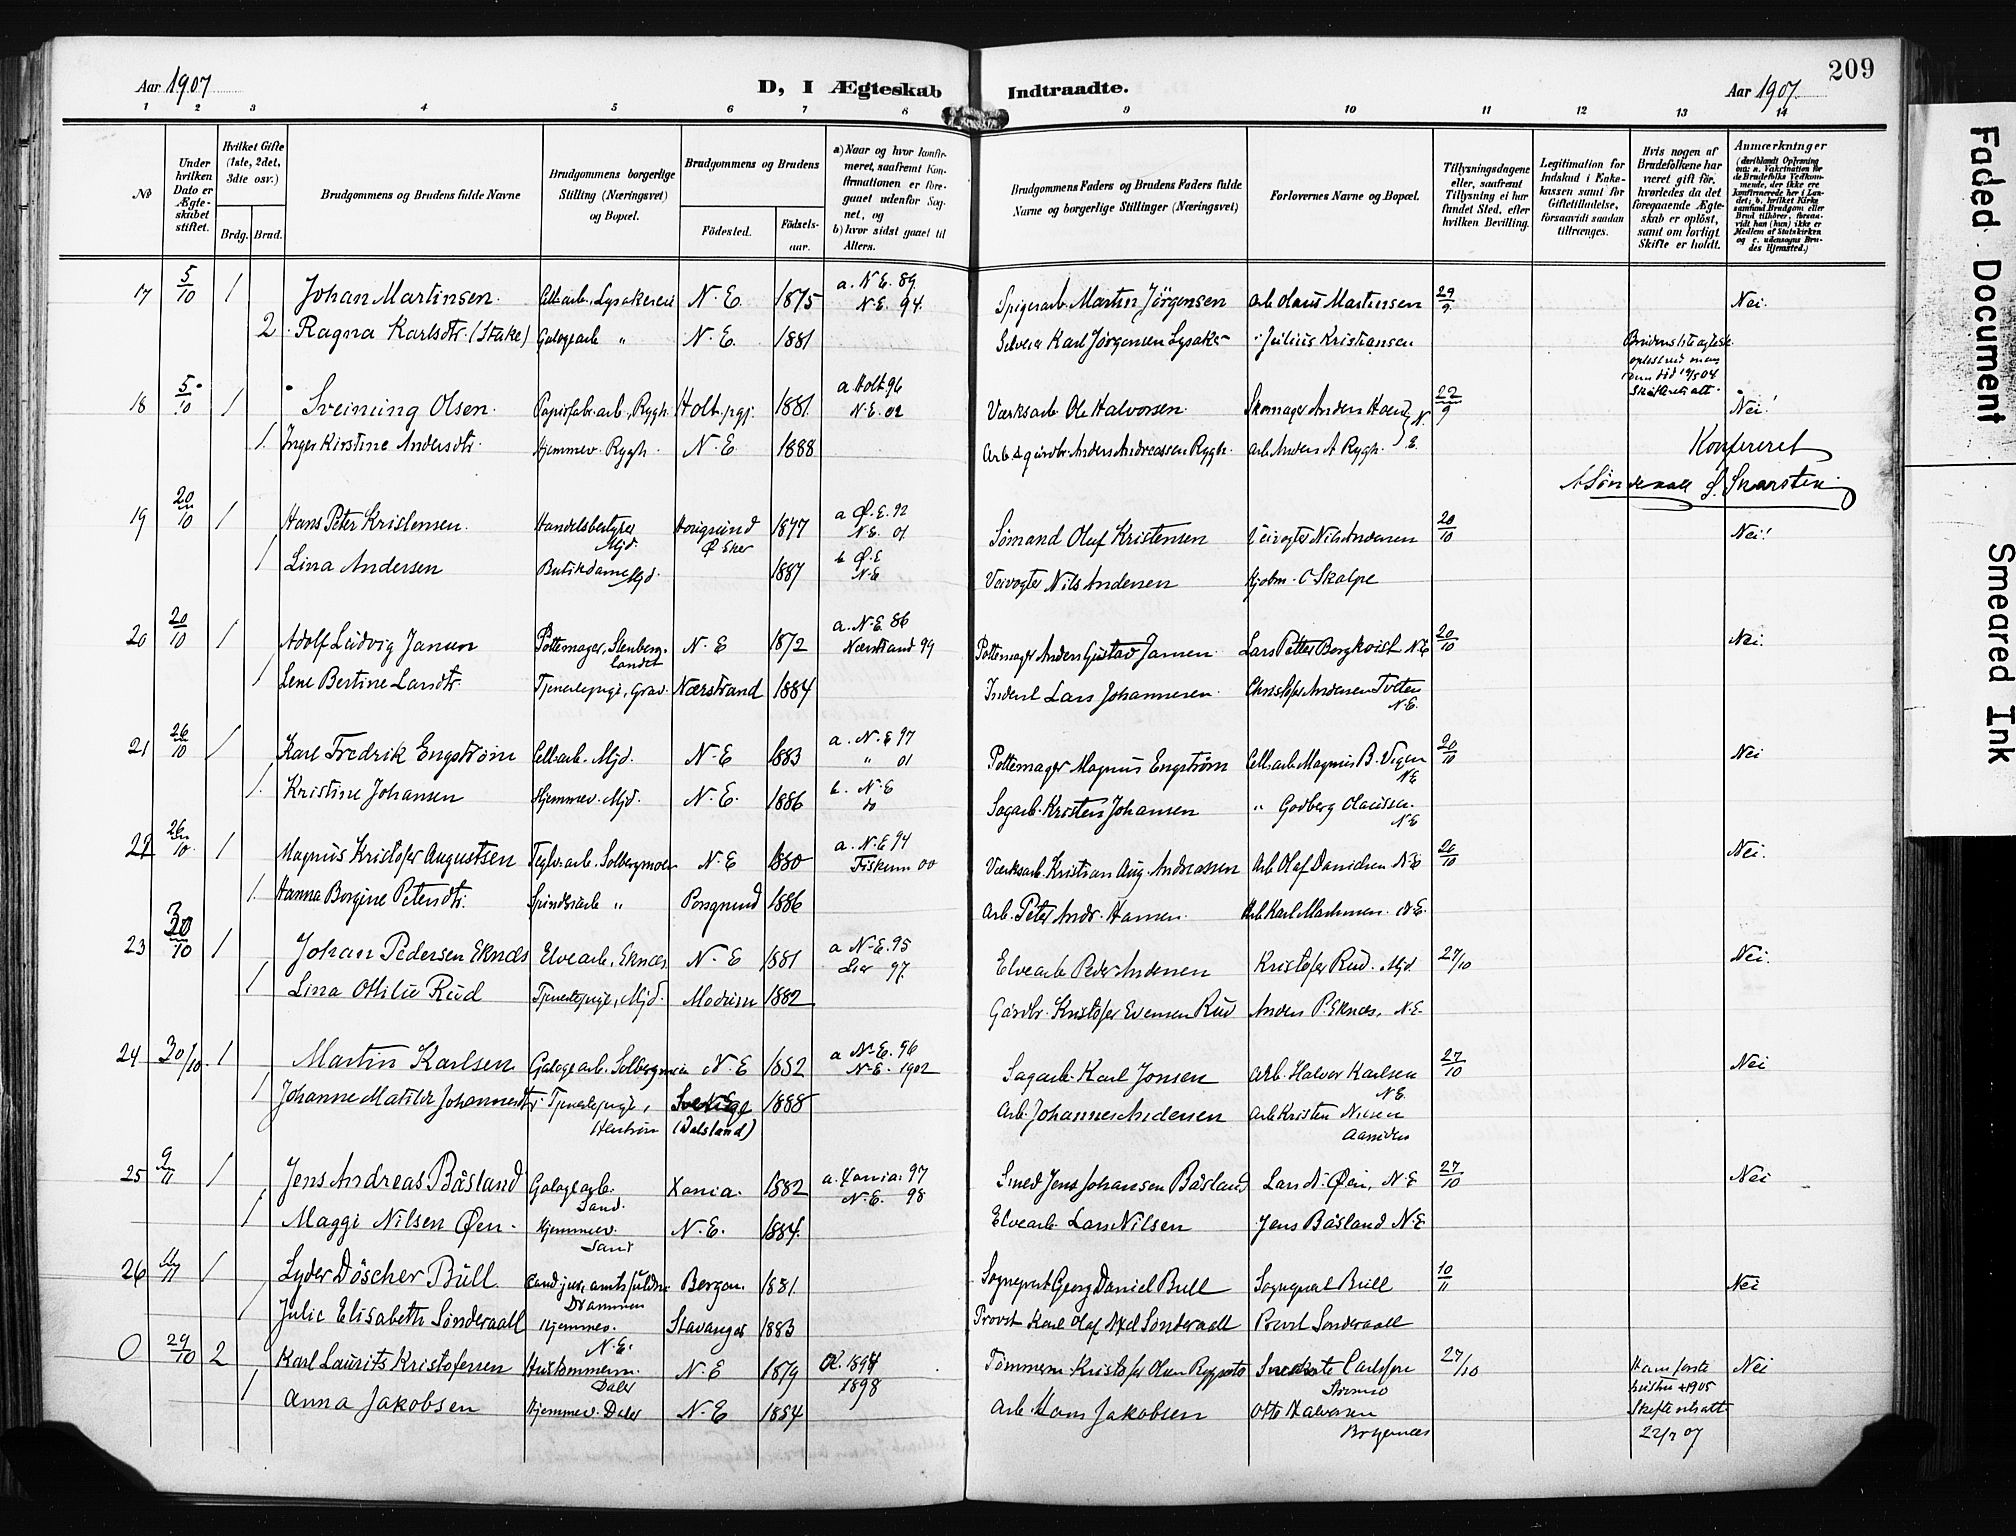 209
Aar 1907
D, I Ægteskab Indtraadte.
Aar 1907.
1 2 3 4 5 6 7 8 9 10 11 12 13 14
No
Under hvilken Dato er Ægteskabet stiftet.
Hvilket Gifte (1ste, 2det, 3die osv.)
Brdg. Brud.
Brudgommens og Brudens fulde Navne
Brudgommens borgerlige Stilling (Næringsvei) og Bopæl.
Brudgommens og Brudens
Fødested.
Fødselsaar.
a) Naar og hvor konfirmeret, saafremt Konfirmationen er foregaaet udenfor Sognet, og
b) hvor sidst gaaet til Alters.
Brudgommens Faders og Brudens Faders fulde Navne og borgerlige Stillinger (Næringsvei)
Forlovernes Navne og Bopæl.
Tillysningsdagene eller, saafremt Tillysning ei har fundet Sted, efter hvilken Bevilling.
Legitimation for Indskud i Enkekassen samt for Giftetilladelse, forsaavidt saadan tiltrænges.
Hvis nogen af Brudefolkene har været gift før, hvorledes da det foregaaende Ægteskab er opløst, samt om lovligt Skifte er holdt.
Anmærkninger
17 5/10 1 Johan Martinsen. Cell.arb. Lysakereie N.E. 1875 a. N.E. 89 N.E. 94. Spigerarb. Martin Jörgensen Arb Olaus Martinsen 29/9 Nei.
2 Ragna Karlsdtr. (Stake) Galogearb " N.E. 1881 Selveier Karl Jörgensen Lysaker " Julius Kristiansen
18 5/10 1 Sveinung Olsen. Papirfabr.arb, Ryggh. Holt pgj. 1881. a Holt 96 N.E. 02 Værksarb. Ole Halvorsen. Skomager Anders Hoen 22/9 Nei!
1. Inger Kirstine Andersdtr. Hjemmev. Ryggh. N.E 1888 Anders Andreassen Ryggh. Arb Anders A Ryggh. N. E.
Konfereret
A Sønderaal S. Skarstein
19 20/10 1 Hans Peter Kristensen. Handelsbestyrer Mjd. 1877 a Ø.E. 92 N.E. 01 Sømand Olaf Kristensen Veivogter Nils Andersen 20/10 Nei!
1 Lina Andersen Butikdame Mjd. Ø Eker 1887 b Ø.E N.E Veivogter Nils Andersen C Skalpe
20 20/10 1 Adolf Ludvig Jansen Pottemager, Stenberglandet N.E 1872 a. N.E. 86 Nærstrand 99 Pottemager Anders Gustav Jansen. Lars Petter Bergkvist N.E 20/10 Nei.
1 Lene Bertine Larsdtr. Tjenestepige, Grav. Nærstrand 1884 Inderst Lars Johannesen. Christofer Andersen Tveten N.E.
21 26/10 1 Karl Fredrik Engstrøm Cell.arb. Mjd. N.E 1883 a. N.E 97 " 01 Pottemager Magnus Engstrøm Cell.arb. Magnus B. Vigen N.E 20/10 Nei
1. Kristine Johansen Hjemmev. Mjd. N.E. 1886 b. N.E do Sagarb. Kristen Johansen " Godberg Olaussen. N.E
22 26/10. 1 Magnus Kristofer Augustsen Teglv.arb. Solbergmoen N.E 1880 a. N.E 94 Fiskum 00 Værksarb. Kristian Aug. Andreassen Arb Olaf Danielsen N.E 20/10 Nei.
1. Hanna Borgine Petersdtr. Spinderarb " Porsgrund 1886 Arb. Peter Andr. Hansen. Arb Karl N.E.
23 30/10 1 Johan Pedersen Eknæs Elvearb, Eknæs N.E 1881 a N.E. 95 Lier 97. Elvearb Peder Andersen Kristofer Rud. Mjd. 27/10 Nei.
1 Lina Ottilie Rud Tjenestepige, Mjd. Modum 1882 Gårdbr. Kristofer Evensen Rud Anders P. Eknæs, N.E.
24 30/10. 1 Martin Karlsen Galogearb. N.E 1882 a N.E. 96 N.E. 1902 Sagarb. Karl Jonsen Arb. Halvor Karlsen N.E. 27/10 Nei
1 Johanne Matilde Johannesdtr Tjenestepige, Sverige (Dalsland) 1888 Arb. Johannes Andersen Arb Kristen
25 9/11 1 Jens Andreas Båsland Galogearb. Sand. Xania. 1882 a. Xania. 97 N.E. 98 Smed Jens Johansen Båsland Lars N. Øen, N.E 27/10 Nei
1 Maggi Nilsen Øen. Hjemmev. Sand N.E. 1884. Elvearb. Lars Nilsen Jens Båsland N.E
26 1 Lyder Döscher Bull cand jur, amtsfuldm. Drammen Bergen. 1881. Sogneprest Georg Daniel Bull Sogneprest Bull 10/11 Nei
1 Julie Elisabeth Sönderaall Hjemmev. N.E. Stavanger 1883 Provst Karl Olaf Axel Sönderaall Provst Sönderaall
0 29/10 2 Karl Laurits Kristofersen Hustømmerm. Daler N.E 1879 1894 1898 Tömmerm. Kristofer Olsen Carlsen Strømsø 27/10 Hans første hustru + 1905 Skifte utsatt 22/7 07 Nei
1 Anna Jakobsen Hjemmev. Daler N.E 1884 Arb. Hans Jakobsen Otto Halvorsen Bragernæs
Faded Document
Smeared Ink